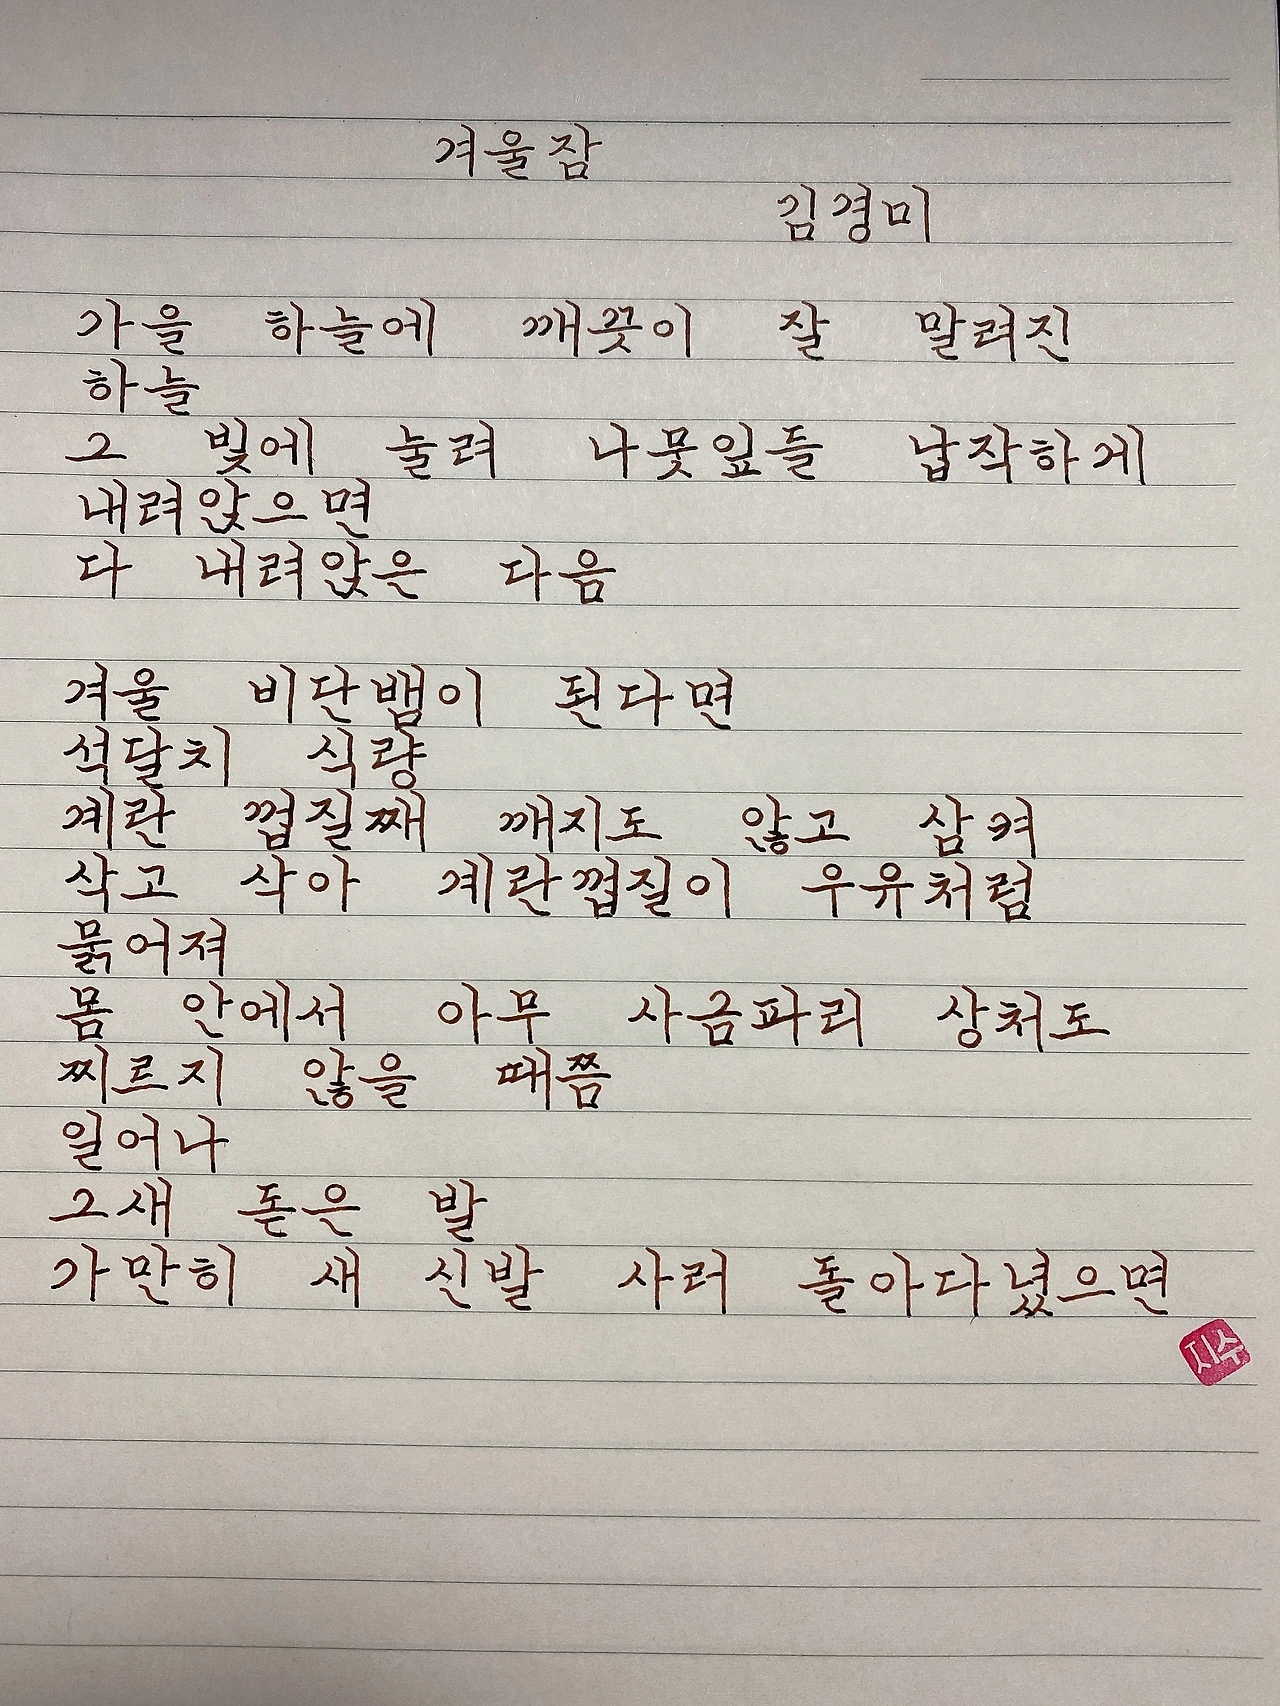 겨울잠
김경미
가을 하늘에 깨끗이 잘 말려진
하늘
그 빛에 눌려 나뭇잎들 납작하게
내려앉으면
다 내려앉은 다음
겨울 비단뱀이 된다면
석달치 식량
계란 껍질째 깨지도 않고 삼켜
삭고 삭아 계란껍질이 우유처럼
묽어져
몸 안에서 아무 사금파리 상처도
찌르지 않을 때쯤
일어나
그새 돋은 발
가만히 새 신발 사러 돌아다녔으면
지수